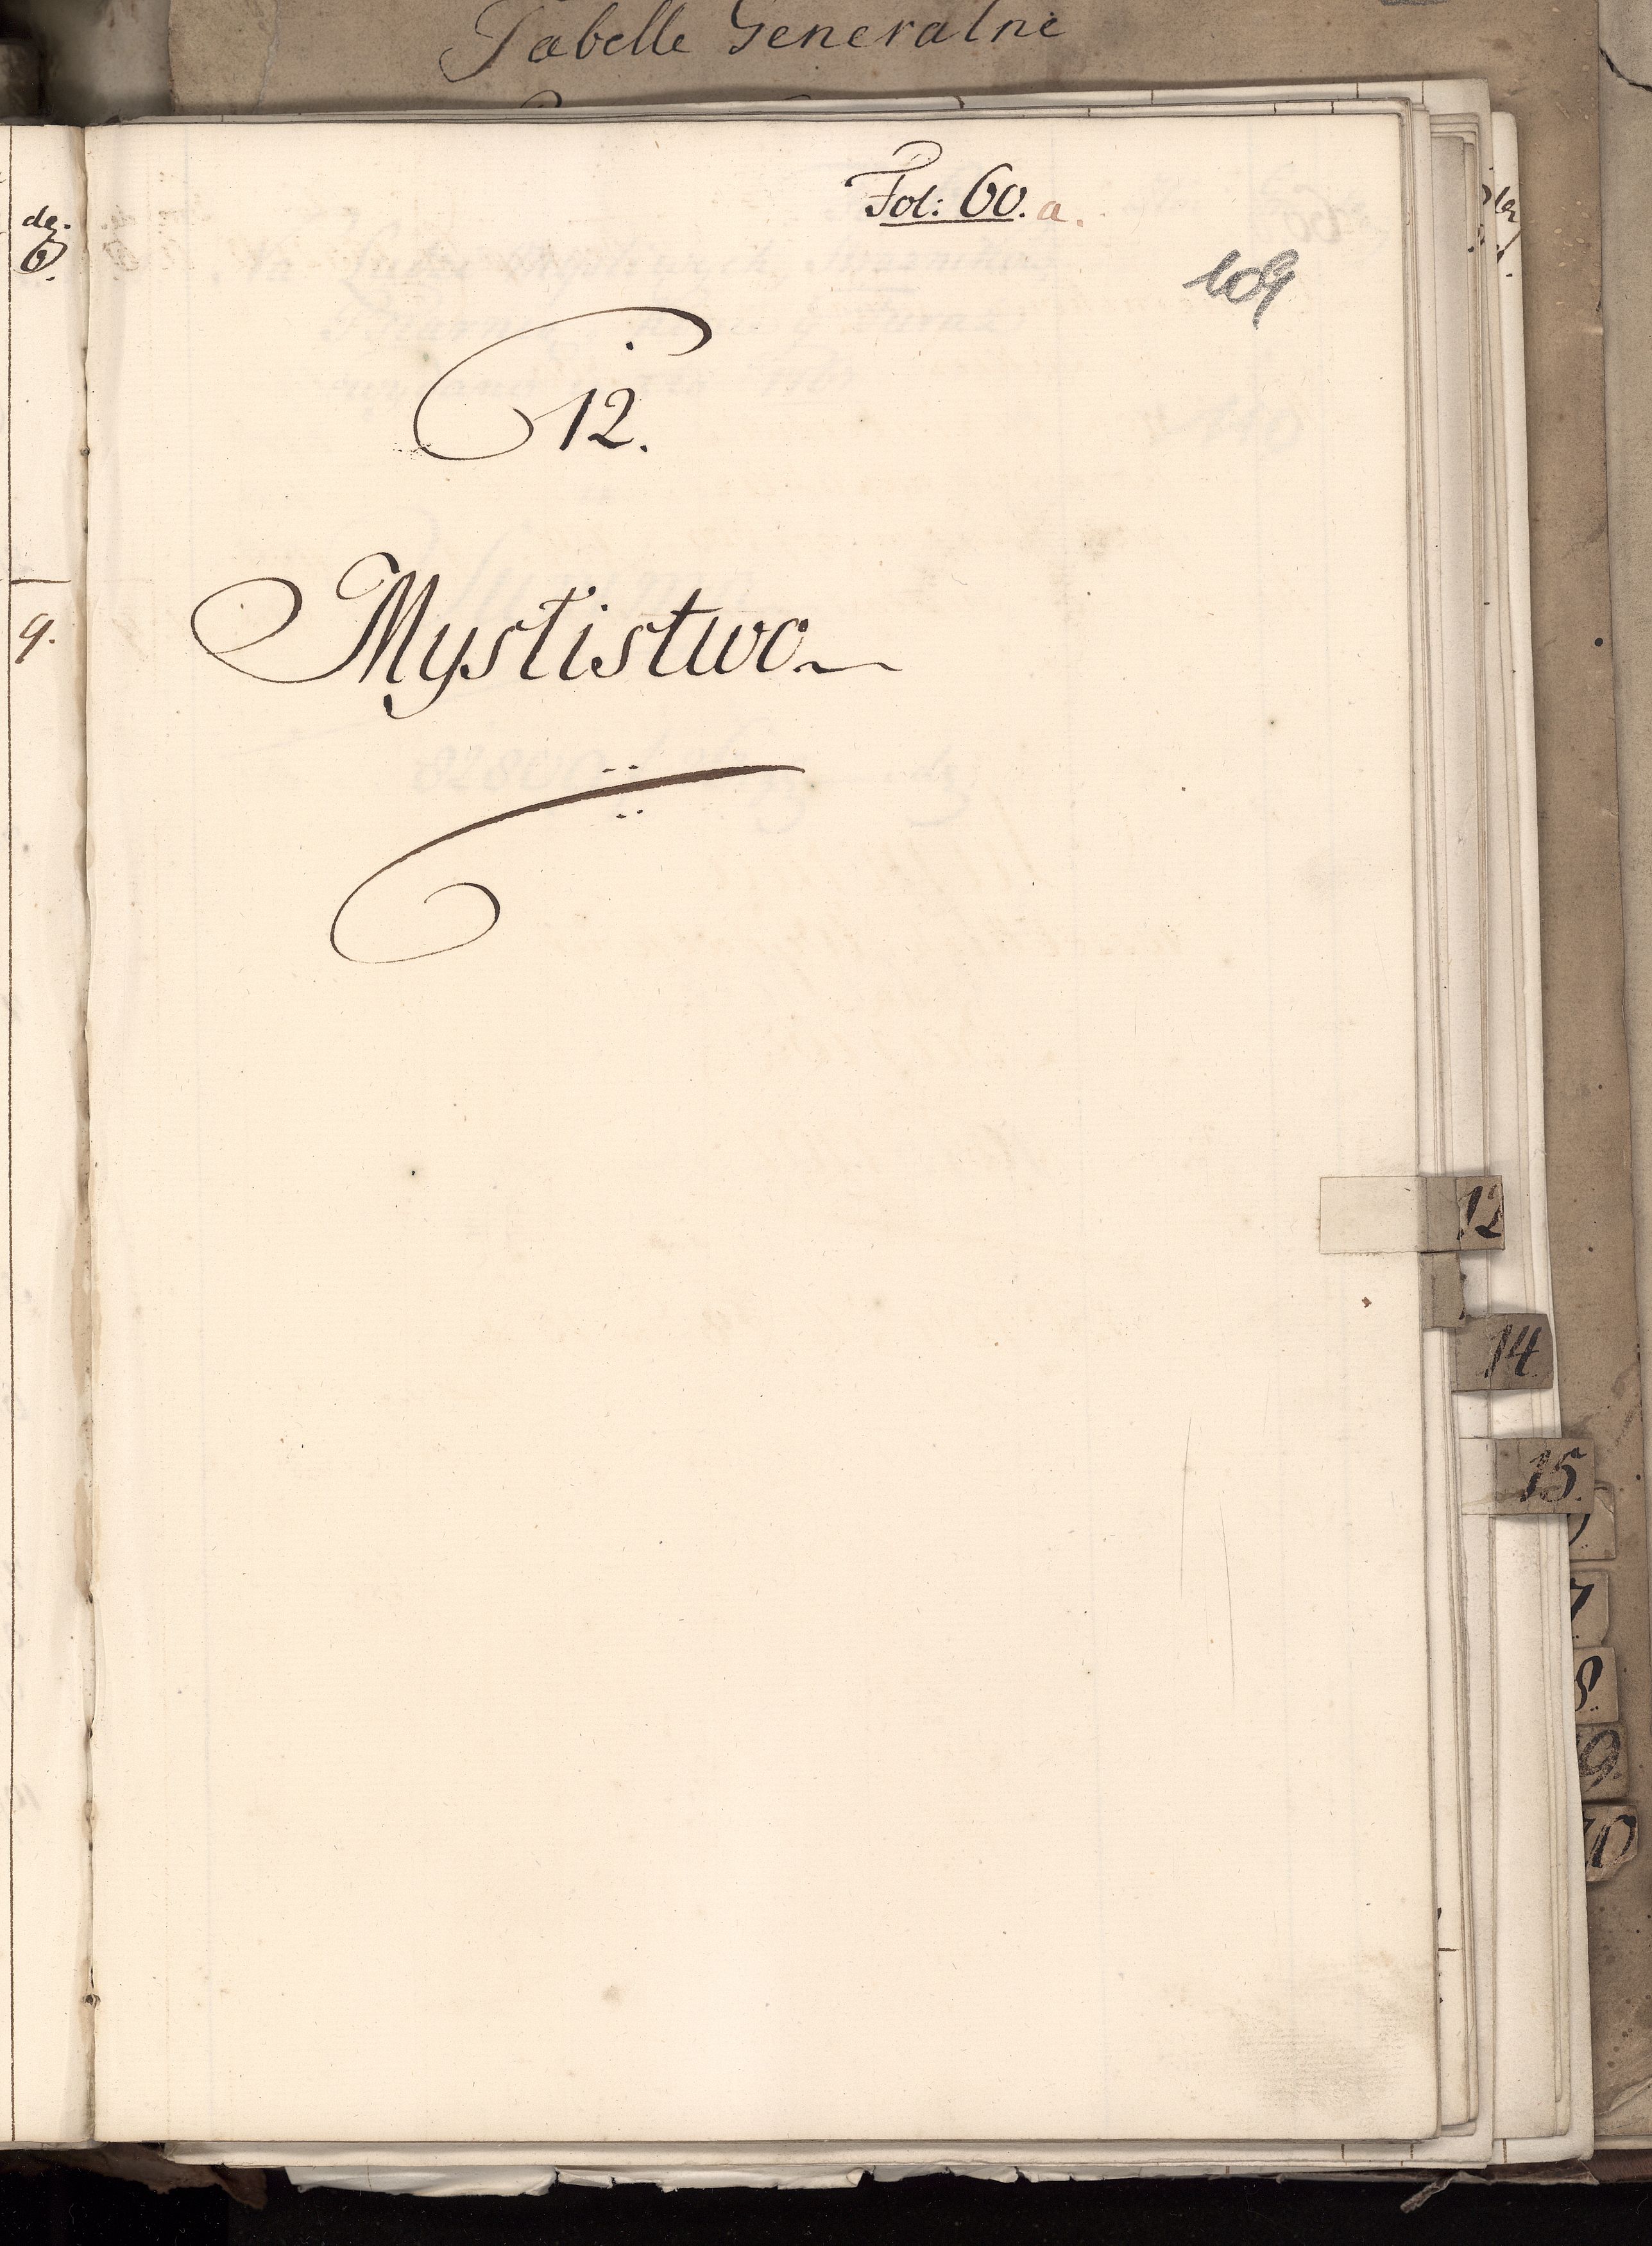 Tabelle Generalne
Fol: 60. a.
109
12.
Mystistwo
dz.
6.
9.
12
14
15.
7
8.
9.